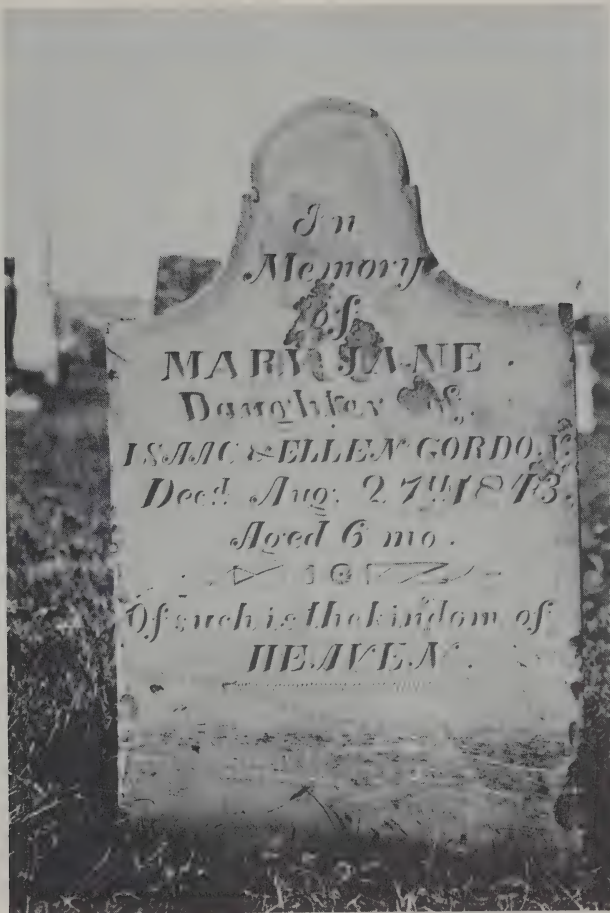 In
Memory
of
MARY JANE
Daughter of
ISAAC & ELLEN GORDON.
Decd Aug. 27th 1843.
Aged 6 mo.
Of such is the kindom of
HEAVEN.